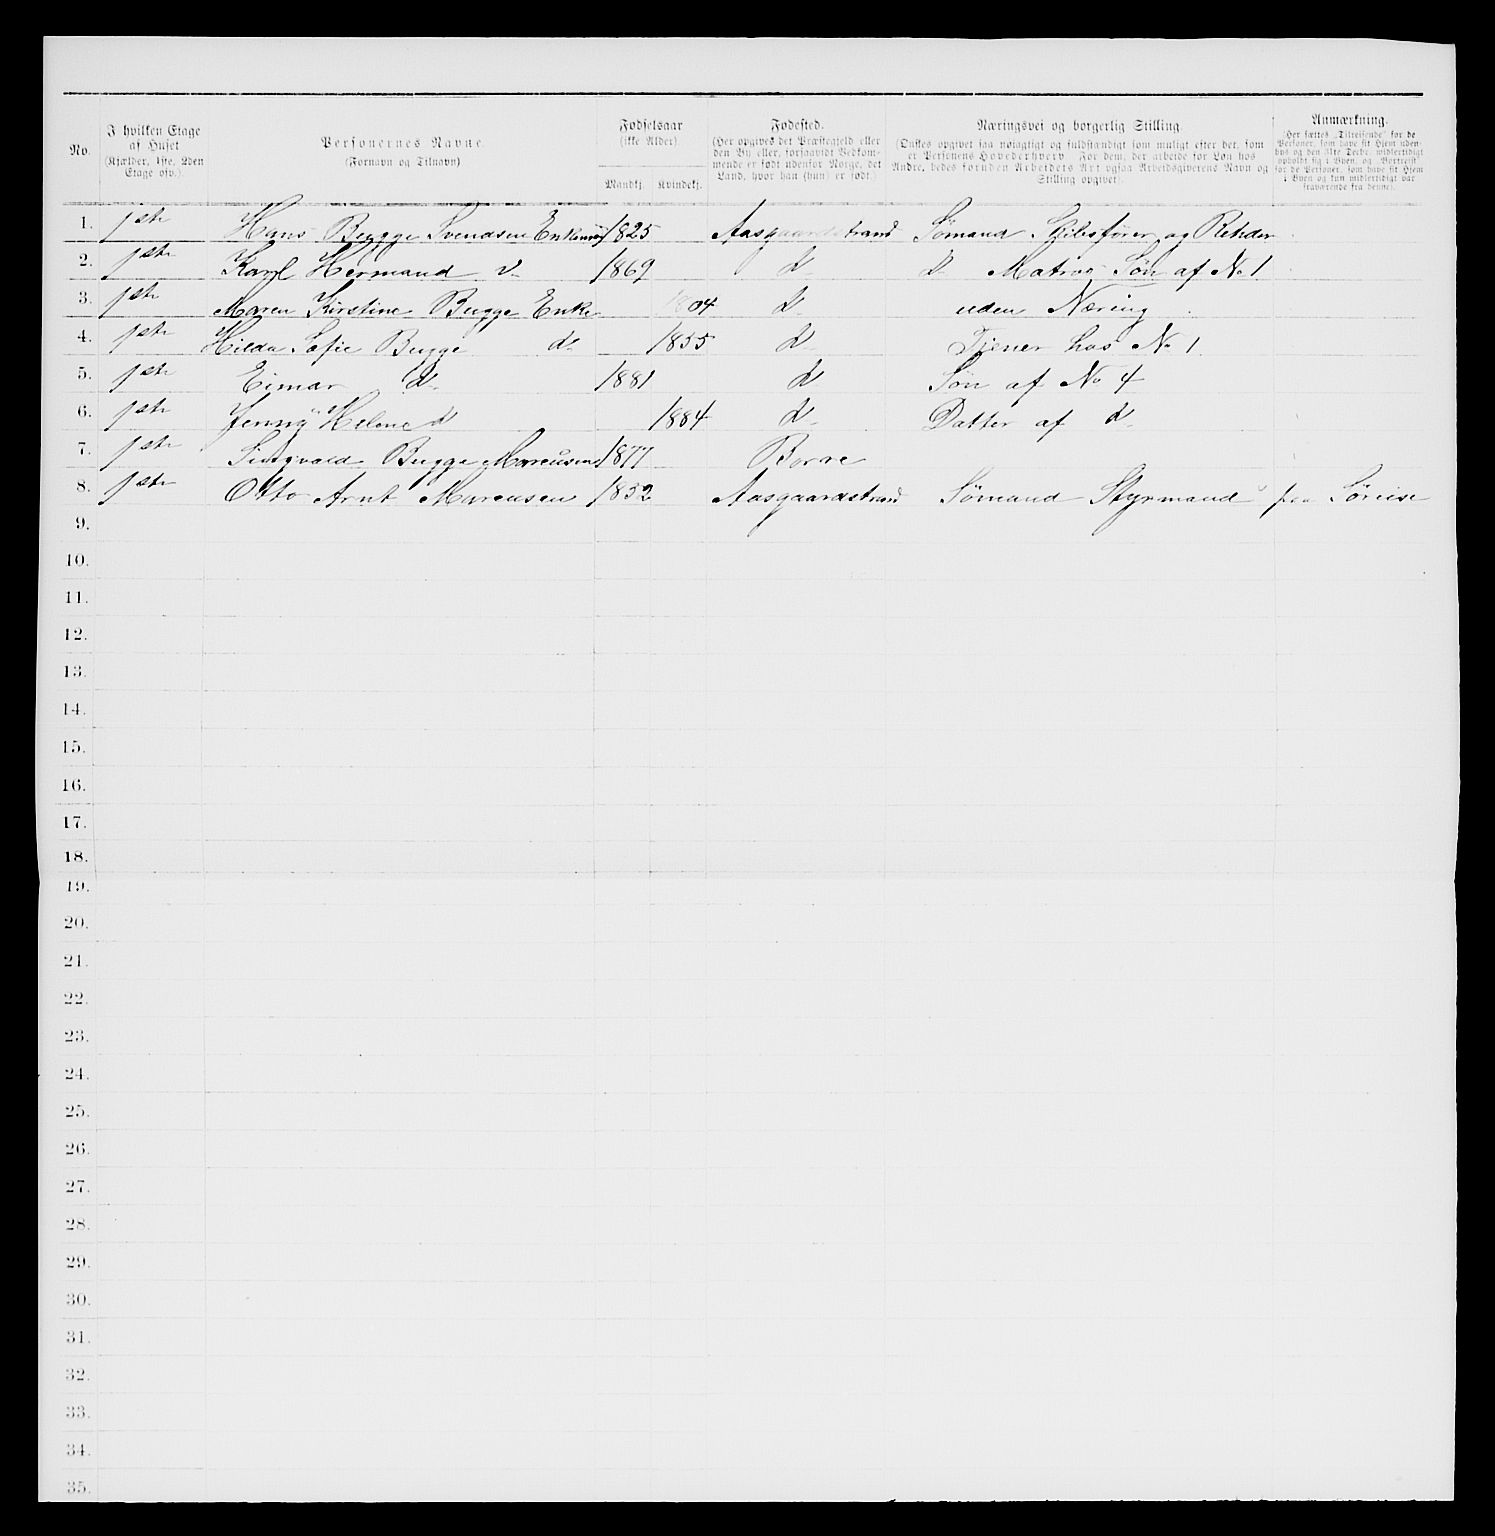 No.
I hvilken Etage
af Huset
(Kjælder, 1ste, 2den
Etage osv.).
Personernes Navne.
(Fornavn og Tilnavn)
Fødselsaar
(ikke Alder).
Mandkj. Kvindekj.
Fødested.
(Her opgives det Præstegjeld eller
den By eller, forsaavidt Vedkom-
mende er født udenfor Norge, det
Land, hvor han (hun) er født.)
Næringsvei og borgerlig Stilling.
(Ønskes opgivet saa nøiagtigt og fuldstændigt som muligt efter det, som
er Personens Hovederhverv. For dem, der arbeide for Løn hos
Andre, bedes foruden Arbeidets Art ogsaa Arbeidsgiverens Navn og
Stilling opgivet).
Anmærkning.
(Her sættes „Tilreisende" for de
Personer, som have sit Hjem uden-
bys og den 31te Decbr. midlertidigt
opholdt sig i Byen, og „Bortreist"
for de Personer, som have sit Hjem
i Byen og kun midlertidigt var
fraværende fra denne).
1. 1ste Hans Bugge Svendsen Enkem 1825 Aasgaardstrand Sømand Skibsfører og Rehder
2. 1ste Karl Hermand do 1869 do do Matros Søn af No 1
3. 1ste Maren Kirstine Bugge Enke 1804 do uden Næring
4. 1ste Hilda Sofie Bugge do 1855 do Tjener hos No 1
5. 1ste Eimar do 1881 do Søn af No 4
6. 1ste Jenny Helene do 1884 do Datter af do
7. 1ste Sigvald Bugge Marcusen 1877 Borre
8. 1ste Otto Arnt Marcusen 1852 Aasgaardstrand Sømand Styrmand paa Søreise
9.
10.
11.
12.
13.
14.
15.
16.
17.
18.
19.
20.
21.
22.
23.
24.
25.
26.
27.
28.
29.
30.
31.
32.
33.
34.
35.